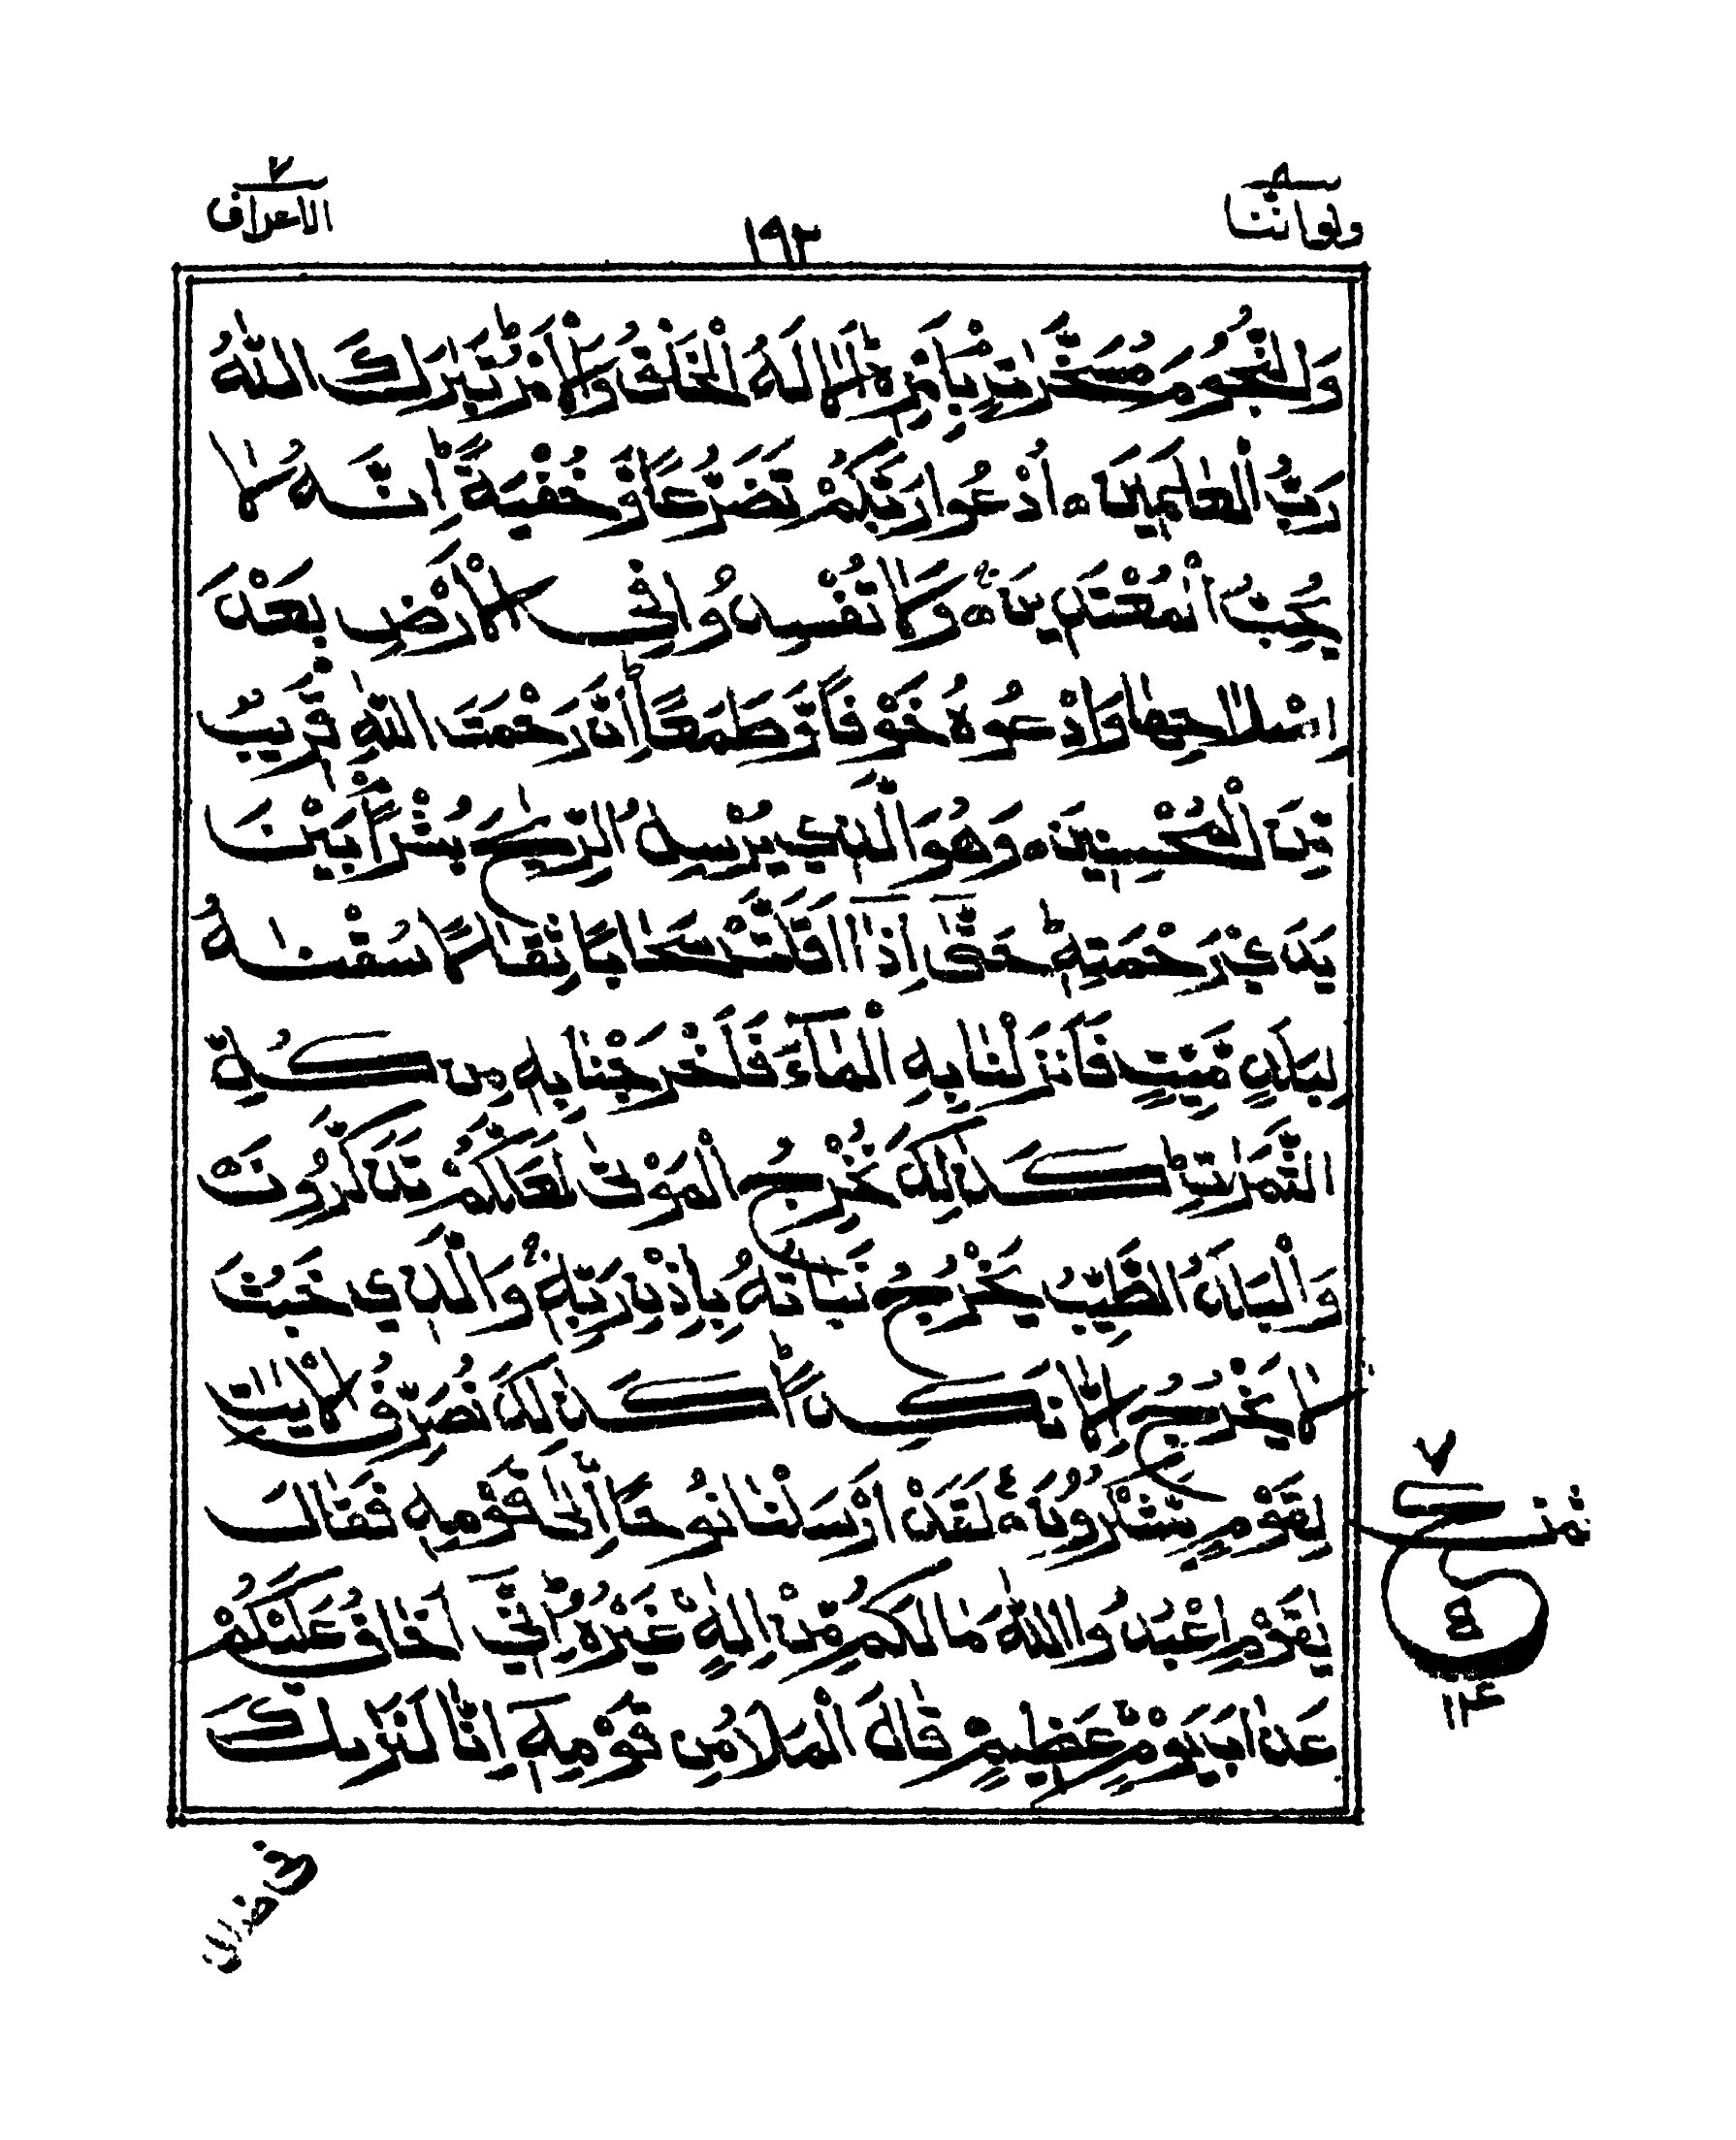 ولواننا ٨
١٩٢
الاعراف ٧
وَالنُّجُوْمَ مُسَخَّرٰتٍ بِاَمْرِهٖ ؕ اَلَا لَهُ الْخَلْقُ وَالْاَمْرُ ؕ تَبٰرَكَ اللّٰهُ
رَبُّ الْعٰلَمِيْنَ ۝ اُدْعُوْا رَبَّكُمْ تَضَرُّعًا وَّخُفْيَةً ؕ اِنَّهٗ لَا
يُحِبُّ الْمُعْتَدِيْنَ ۝ وَلَا تُفْسِدُوْا فِى الْاَرْضِ بَعْدَ
اِصْلَاحِهَا وَادْعُوْهُ خَوْفًا وَّطَمَعًا ؕ اِنَّ رَحْمَتَ اللّٰهِ قَرِيْبٌ
مِّنَ الْمُحْسِنِيْنَ ۝ وَهُوَ الَّذِيْ يُرْسِلُ الرِّيٰحَ بُشْرًۢا بَيْنَ
يَدَيْ رَحْمَتِهٖ ؕ حَتّٰى اِذَاۤ اَقَلَّتْ سَحَابًا ثِقَالًا سُقْنٰهُ
لِبَلَدٍ مَّيِّتٍ فَاَنْزَلْنَا بِهِ الْمَآءَ فَاَخْرَجْنَا بِهٖ مِنْ كُلِّ
الثَّمَرٰتِ ؕ كَذٰلِكَ نُخْرِجُ الْمَوْتٰى لَعَلَّكُمْ تَذَكَّرُوْنَ ۝
وَالْبَلَدُ الطَّيِّبُ يَخْرُجُ نَبَاتُهٗ بِاِذْنِ رَبِّهٖ ۚ وَالَّذِيْ خَبُثَ
لَا يَخْرُجُ اِلَّا نَكِدًا ؕ كَذٰلِكَ نُصَرِّفُ الْاٰيٰتِ
لِقَوْمٍ يَّشْكُرُوْنَ ۝ لَقَدْ اَرْسَلْنَا نُوْحًا اِلٰى قَوْمِهٖ فَقَالَ
يٰقَوْمِ اعْبُدُوا اللّٰهَ مَا لَكُمْ مِّنْ اِلٰهٍ غَيْرُهٗ ؕ اِنِّيْۤ اَخَافُ عَلَيْكُمْ
عَذَابَ يَوْمٍ عَظِيْمٍ ۝ قَالَ الْمَلَاُ مِنْ قَوْمِهٖۤ اِنَّا لَنَرٰىكَ
ثمن
٧
ع
٥
١٤
فى ضلل